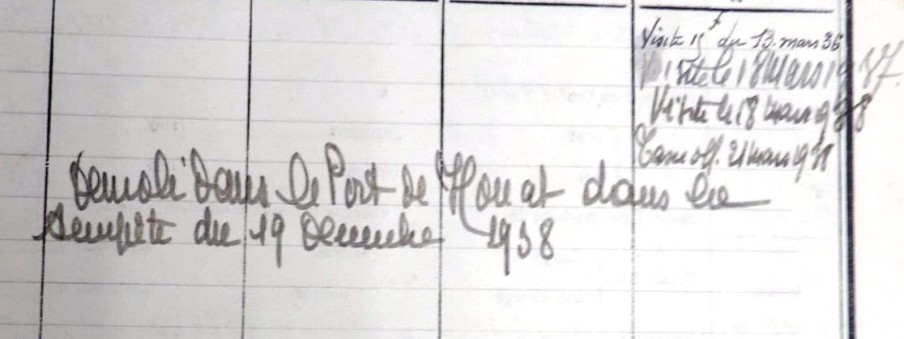 Visite du 13 mars 36
Visite le 18 Mars 1937
Visite le 18 mars 1938
off. 21 mars 1938
Demoli dans le Port de Houat dans la
tempête du 19 Decembre 1938